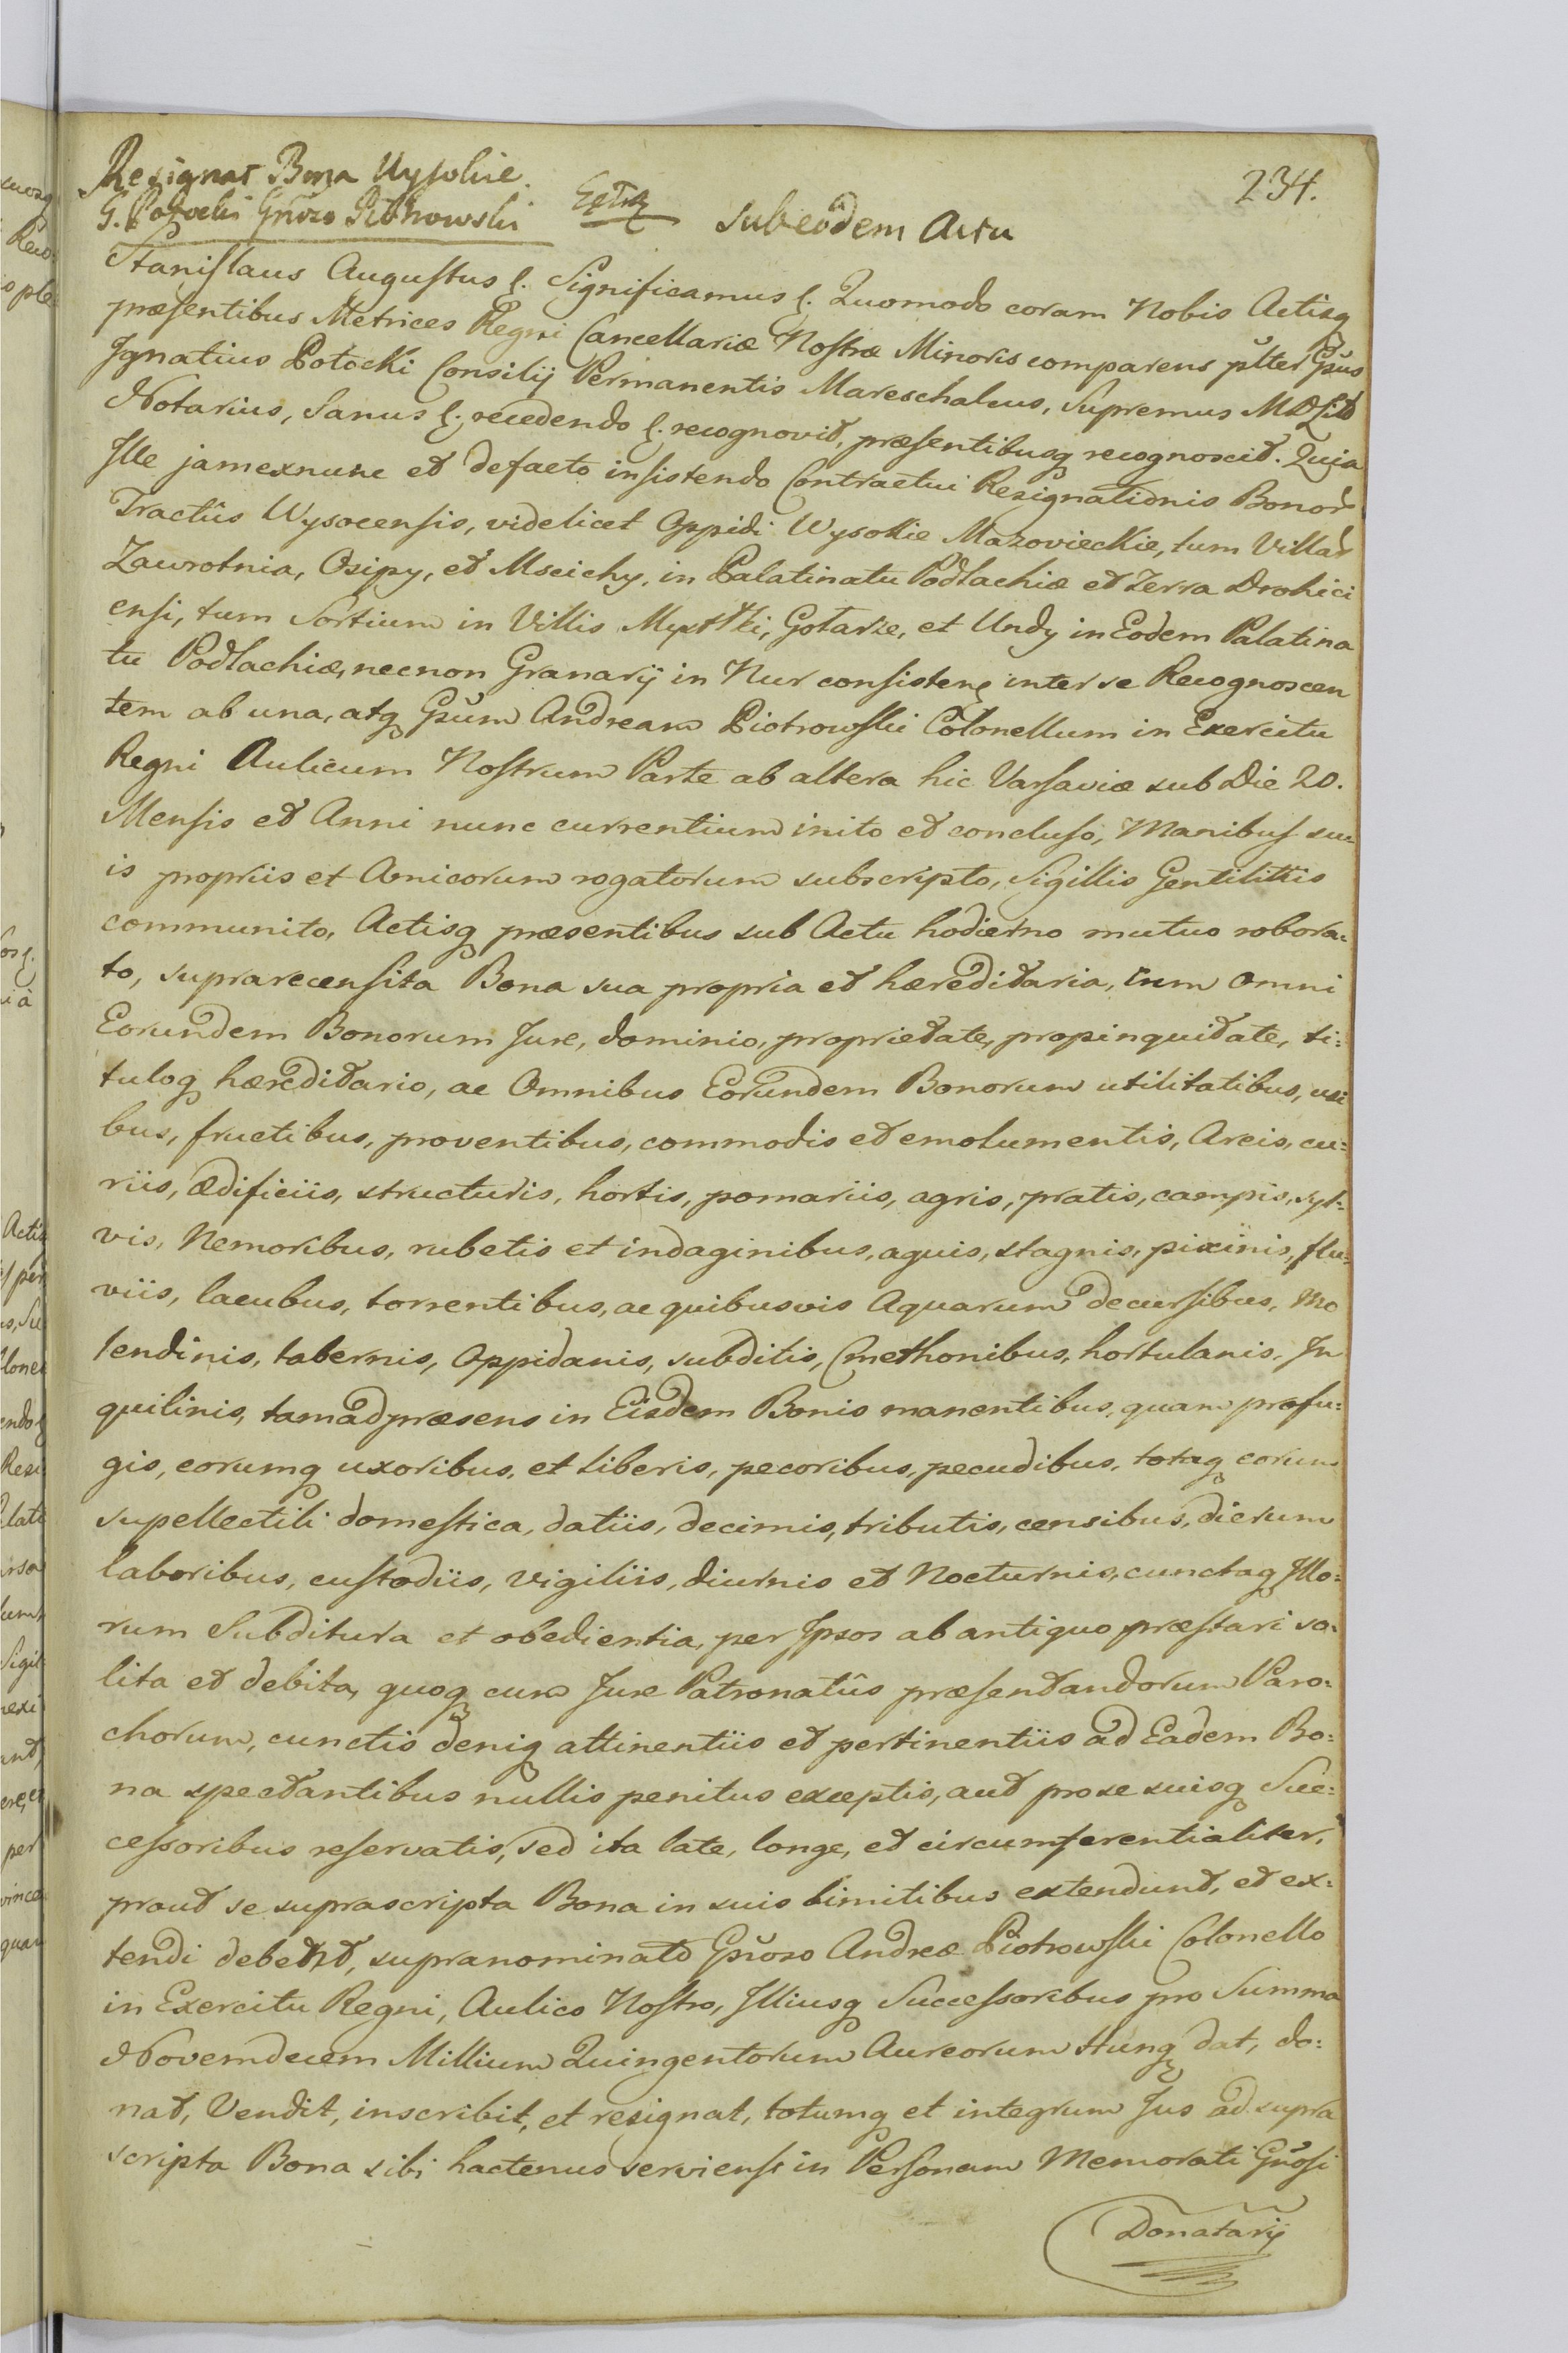 234.
Resignat Bona Wysokie
G. Potocki Gnoso Piotrowski
Extr
Sub eodem Actu
Stanislaus Augustus etc. Significamus etc. Quomodo coram Nobis Actisq
præsentibus Metrices Regni Cancellariæ Nostræ Minoris comparens pltter Gnsus
Ignatius Potocki Consilij Permanentis Mareschalcus, Supremus M D Lit
Notarius, Sanus etc. recedendo etc. recognovit, præsentibusq recognoscit. Quia
Ille jamexnunc et defacto insistendo Contractui Resignationis Bonor
Tractûs Wysocensis, videlicet Oppidi Wysokie Mazovieckie, tum Villar
Zawrotnia, Osipy, et Mscichy, in Palatinatu Podlachiæ et Terra Drohici
ensi, tum Sortium in Villis Mystki, Gołasze, et Undy in Eodem Palatina
tu Podlachiæ, necnon Granarij in Nur consisten inter se Recognoscen
tem ab una, atq Gnsum Andream Piotrowski Colonellum in Exercitu
Regni Aulicum Nostrum Parte ab altera hic Varsaviæ sub Die 20.
Mensis et Anni nunc currentium inito et concluso, Manibus su-
is propriis et Amicorum rogatorum subscripto, Sigillis Gentilitiis
communito, Actisq præsentibus sub Actu hodierno mutuo robora=
to, suprarecensita Bona sua propria et hæreditaria, cum omni
Eorundem Bonorum Jure, dominio, proprietate, propinquitate, ti=
tuloq hæreditario, ac Omnibus Eorundem Bonorum utilitatibus, usi
bus, fructibus, proventibus, commodis et emolumentis, Areis, cu=
riis, ædificiis, structuris, hortis, pomariis, agris, pratis, campis, syl=
vis, Nemoribus, rubetis et indaginibus, aquis, stagnis, piscinis, flu=
viis, lacubus, torrentibus, ac quibusvis Aquarum decursibus, Mo
lendinis, tabernis, Oppidanis, subditis, Cmethonibus, hortulanis, In
quilinis, tam ad præsens in Eisdem Bonis manentibus, quam profu=
gis, eorumq uxoribus, et liberis, pecoribus, pecudibus, totaq eorum
supellectili domestica, datiis, decimis, tributis, censibus, dierum
laboribus, custodiis, vigiliis, diurnis et Nocturnis, cunctaq Illo=
rum Subditura et obedientia, per Ipsos ab antiquo præstari so=
lita et debita, quoq cum Jure Patronatûs præsentandorum Paro=
chorum, cunctis deniq attinentiis et pertinentiis ad Eadem Bo=
na spectantibus nullis penitus exceptis, aut pro se suisq Suc=
cessoribus reservatis, sed ita late, longe, et circumferentialiter,
prout se suprascripta Bona in suis limitibus extendunt, et ex=
tendi debent, supranominato Gnoso Andreæ Piotrowski Colonello
in Exercitu Regni, Aulico Nostro, Illiusq Successoribus pro Summa
Novemdecem Millium Quingentorum Aureorum Hung dat, do=
nat, Vendit, inscribit, et resignat, totumq et integrum Jus ad supra
scripta Bona sibi hactenus serviens in Personam Memorati Gnosi
Donatarij